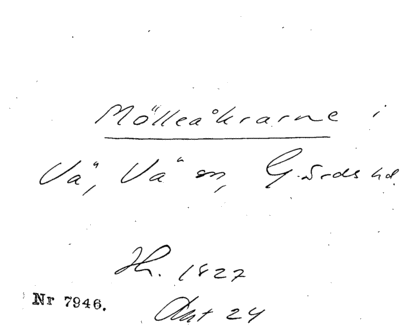 Mölleåkrarne i
Vä, Vä sn, Gärds hd.
Hr. 1827
Akt 24
Nr 7946.